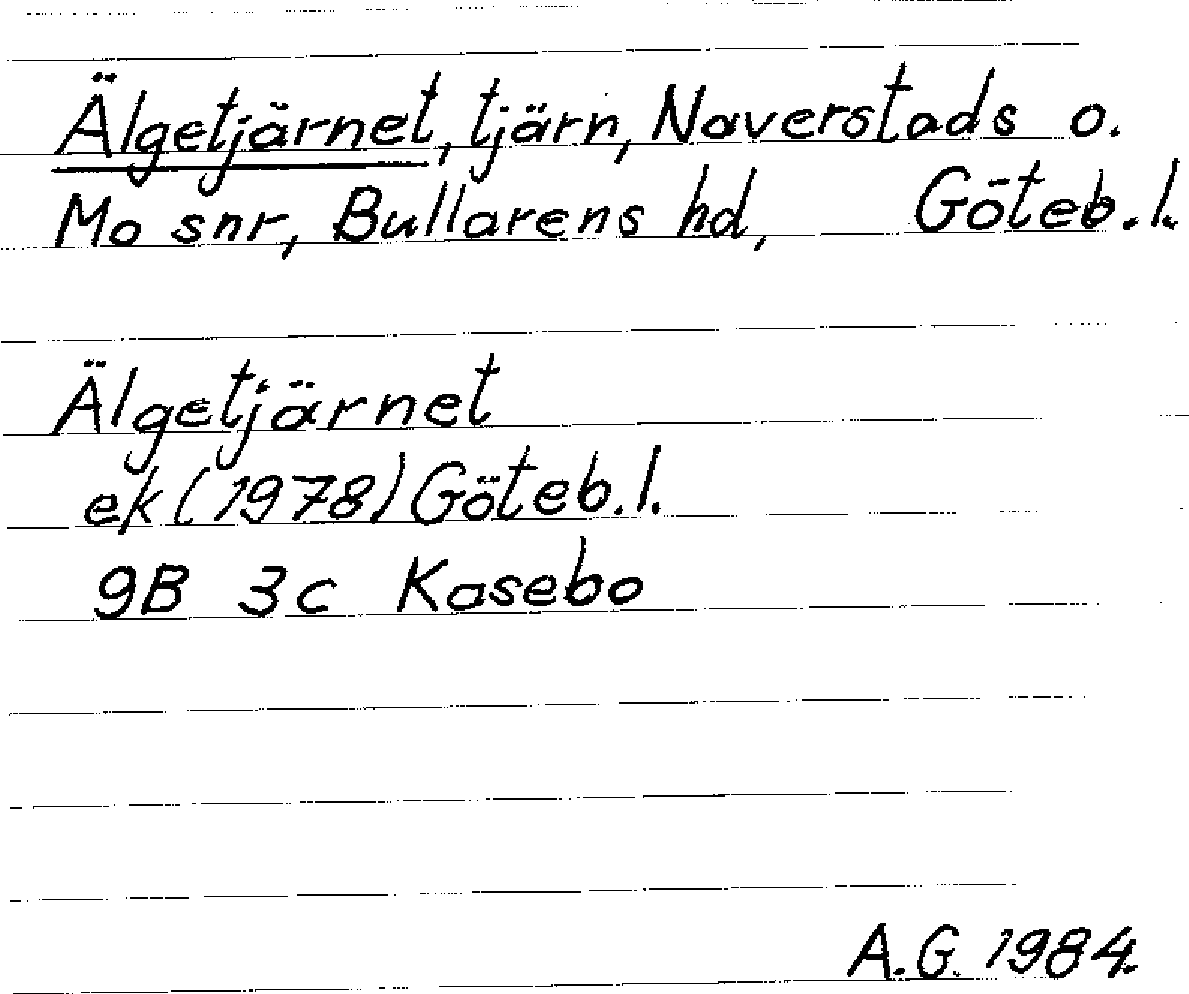 Älgetjärnet, tjärn, Naverstads o.
Mo snr, Bullarens hd, Göteb.l.
Älgetjärnet
ek (1978) Göteb.l.
9B 3c Kasebo
A.G. 1984.